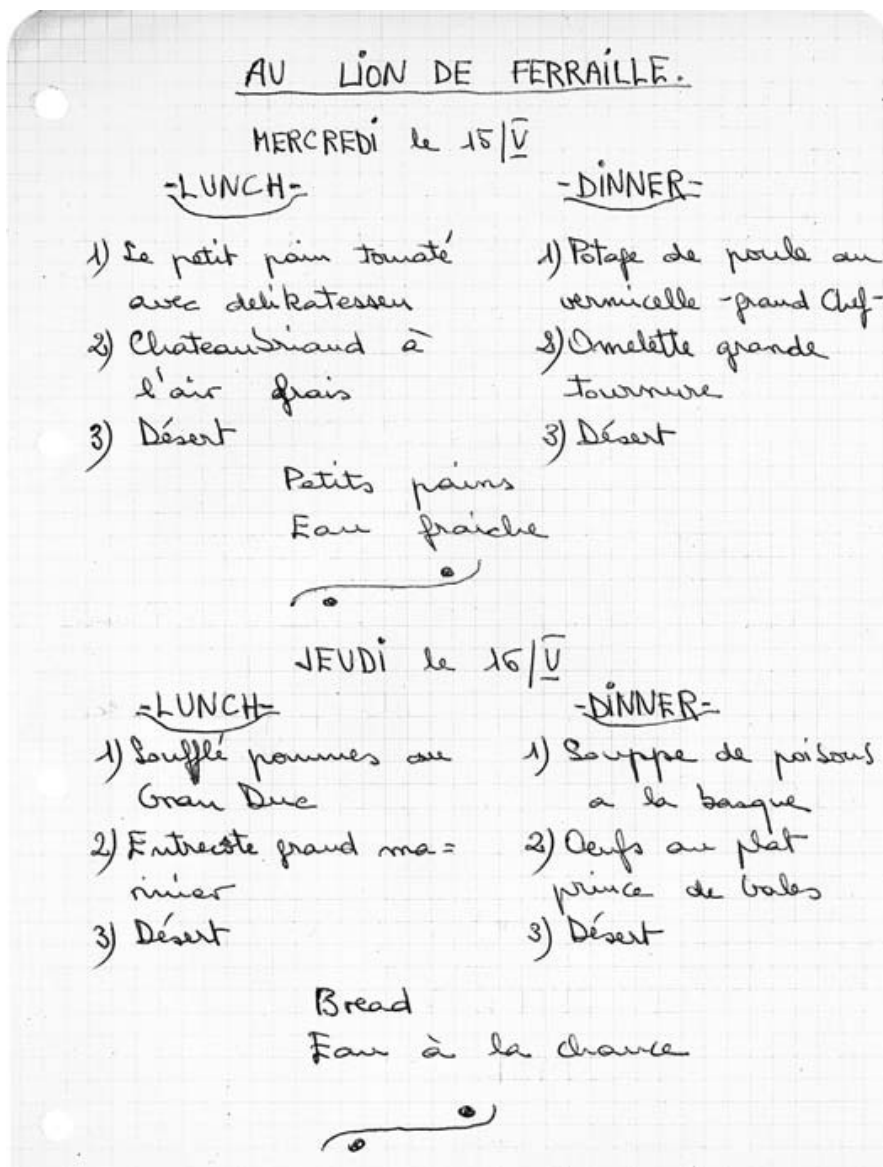 AU LION DE FERRAILLE.
MERCREDI le 15/V
-LUNCH-
1) Le petit pain tomaté
avec delikatessen
2) Chateaubriand à
l'air frais
3) Désert
-DINNER-
1) Potage de poule au
vermicelle -grand Chef-
2) Omelette grande
tournure
3) Désert
Petits pains
Eau fraiche
JEUDI le 16/V
-LUNCH-
1) Soufflé pommes au
Gran Duc
2) Entrecôte grand ma=
rinier
3) Désert
-DINNER-
1) Souppe de poisons
a la basque
2) Oeufs au plat
prince de Gales
3) Désert
Bread
Eau à la chance